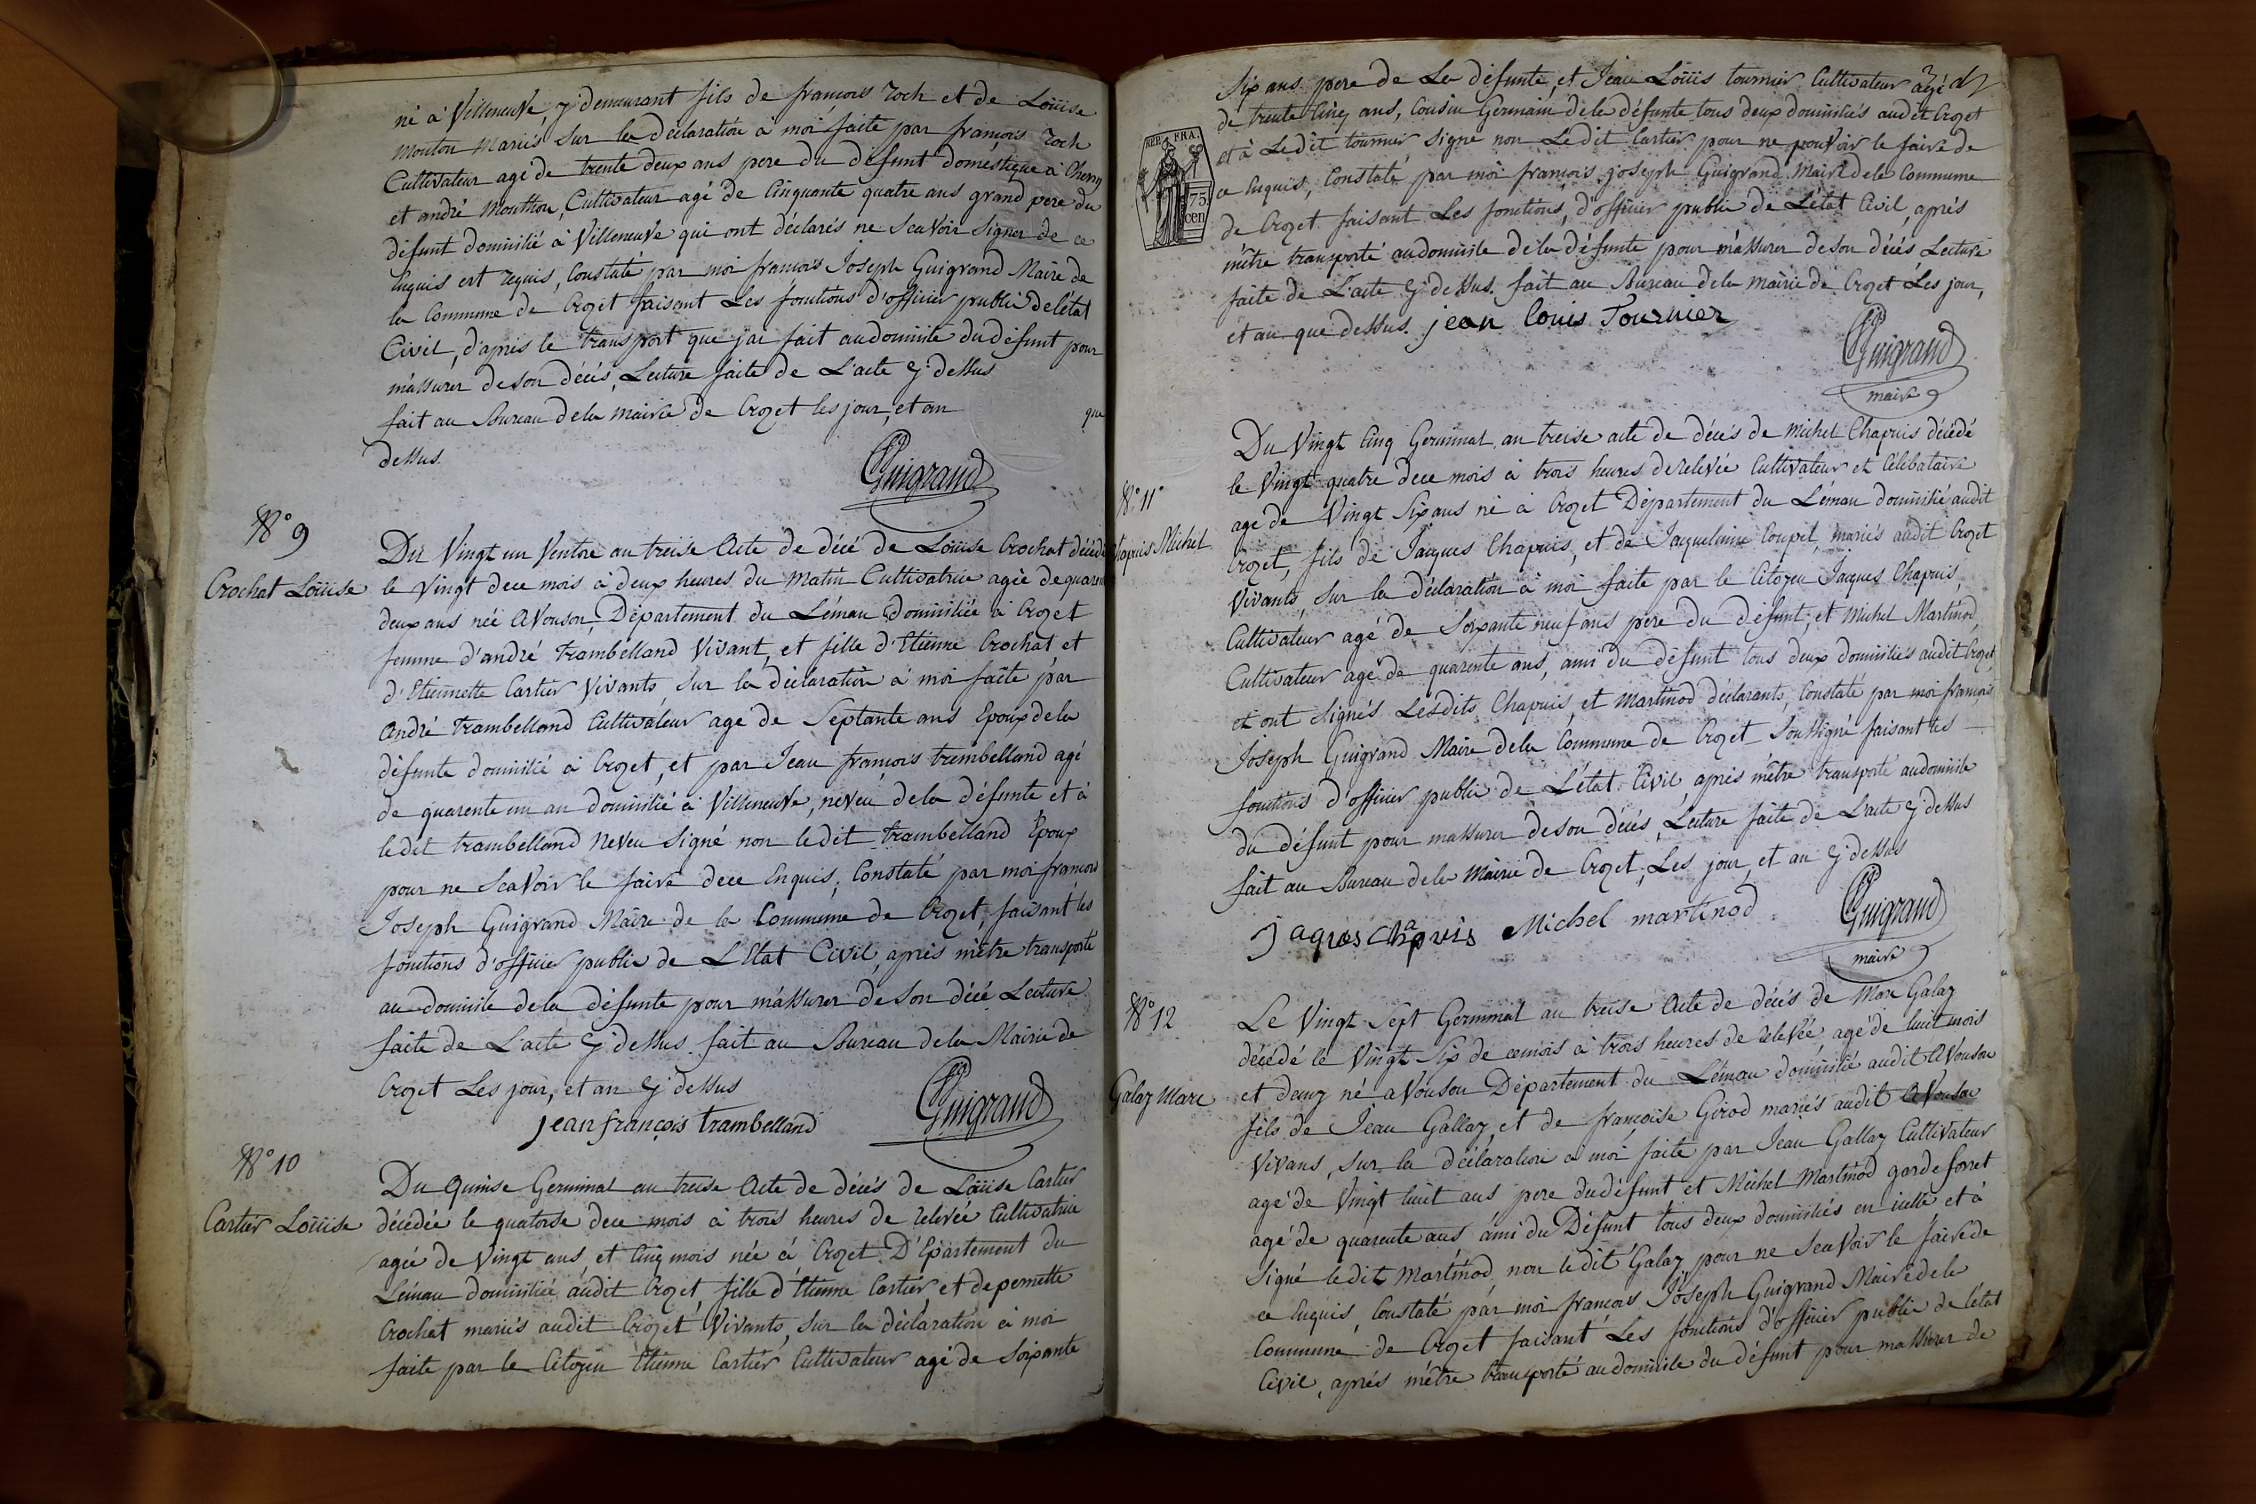 né à Villeneuve, y demeurant fils de françois Roch et de Loüise
Mouton Mariés sur la déclaration à moi faite par françois Roch
Cultivateur agé de trente deux ans pere du défunt domestique à
et andré Mouthon, Cultivateur agé de Cinquante quatre ans grand pere du
défunt domicilié à Villeneuve qui ont déclarés ne Scavoir Signer de ce
Enquis et requis, Constaté par moi françois Joseph Guigrand Maire de
la Commune de Crozet faisant Les fonctions d'officier public de l'état
Civil, d'après le transport que j'ai fait au domicile du défunt pour
m'assurer de son décès, Lecture faite de L'acte cy dessus
fait au Bureau de la Mairie de Crozet les jour, et an que
dessus.
Guigrand
N° 9
Crochat Loüise
Du Vingt un Ventose an treise Acte de décé de Loüise Crochat décédée
le Vingt dece mois à deux heures du Matin Cultivatrice agée de quarante
deux ans née Avouson, Département du Léman domiciliée à Crozet
femme d'andré Trambelland Vivant, et fille d'Etienne Crochat et
d'Etiennette Cartier Vivants, Sur la déclaration à moi faite par
André trambelland Cultivateur age de Septante ans Epoux de la
défunte domicilié à Crozet, et par Jean françois trambelland agé
de quarente un an domicilié à Villeneuve, neveu de la défunte et à
ledit trambelland Neveu Signé non ledit trambelland Epoux
pour ne Scavoir le faire dece Enquis, Constaté par moi françois
Joseph Guigrand Maire de la Commune de Crozet, faisant les
fonctions d'officier public de L'Etat Civil, après m'être transporté
au domicile de la défunte pour m'assurer de Son décé Lecture
faite de L'acte cy dessus. fait au Bureau de la Mairie de
Crozet Les jour, et an cy dessus
jean françois trambelland
Guigrand
N° 10
Cartier Loüise
Du Quinse Germinal an treise Acte de décès de Loüise Cartier
décédée le quatorse dece mois à trois heures de relevée Cultivatrice
agée de Vingt ans, et Cinq mois née à Crozet D'Epartement du
Léman domiciliée audit Crozet fille d'Etienne Cartier, et de pernette
Crochat mariés audit Crozet Vivants, sur la déclaration à moi
faite par le Citoyen Etienne Cartier Cultivateur agé de Soixante
Six ans pere de La défunte, et Jean Loüis tournier Cultivateur agé
de trente Cinq ans, Cousin Germain de la défunte tous deux domiciliés audit Crozet
REP. FRA.
75. cen
et à Ledit tournier Signé non Ledit Cartier pour ne pouvoir le faire de
ce Enquis, Constaté par moi françois joseph Guigrand Maire de la Commune
de Crozet faisant Les fonctions, d'officier public de L'état Civil, après
m'être transporté au domicile de la défunte pour m'assurer de son décés Lecture
faite de L'acte cy dessus. fait au Bureau de la Mairie de Crozet Les jour,
et an que dessus. jean louis Tournier
Guigrand
maire
N° 11°
Chapuis Michel
Du Vingt Cinq Germinal an treise acte de décès de Michel Chapuis décédé
le Vingt quatre dece mois à trois heures de relevée Cultivateur et Célibataire
age de Vingt Six ans né à Crozet Département du Léman domicilié audit
Crozet, fils de Jacques Chapuis, et de Jaquelinne Coupel, mariés audit Crozet
Vivants, Sur la déclaration à moi faite par le Citoyen Jacques Chapuis,
Cultivateur agé de Soixante neuf ans pere du défunt, et Michel Martinod,
Cultivateur agé de quarente ans, ami du défunt tous deux domiciliés audit Crozet,
et ont Signés Lesdits Chapuis, et Martinod déclarants, Constaté par moi françois
Joseph Guigrand Maire de la Commune de Crozet Soussigné faisant les
fonctions d'officier public de L'état Civil, après m'être transporté au domicile
du défunt pour massurer de son décés, Lecture faite de L'acte cy dessus
fait au Bureau de la Mairie de Crozet, Les jour, et an cy dessus
jaques chapuis Michel martinod
Guigrand
maire
N° 12
Galaz Marc
Le Vingt Sept Germinal an treise Acte de décés de Marc Galaz
décédé le Vingt Six de ce mois à trois heures de relevée, agé de huit mois
et demy né a Vouson Département du Léman domicilié audit Avouson
fils de Jean Gallaz, et de françoise Girod mariés audit Avouson
Vivans, Sur la déclaration à moi faite par Jean Gallaz Cultivateur
agé de Vingt huit ans, pere du défunt et Michel Martinod garde forret
agé de quarente ans ami du Défunt tous deux domiciliés en icelle et à
Signé ledit Martinod, non ledit Galaz pour ne Scavoir le faire de
ce Enquis, Constaté par moi françois Joseph Guigrand Maire de la
Commune de Crozet faisant Les fonctions d'officier public de L'état
Civil, après m'être transporté au domicile du défunt pour massurer de